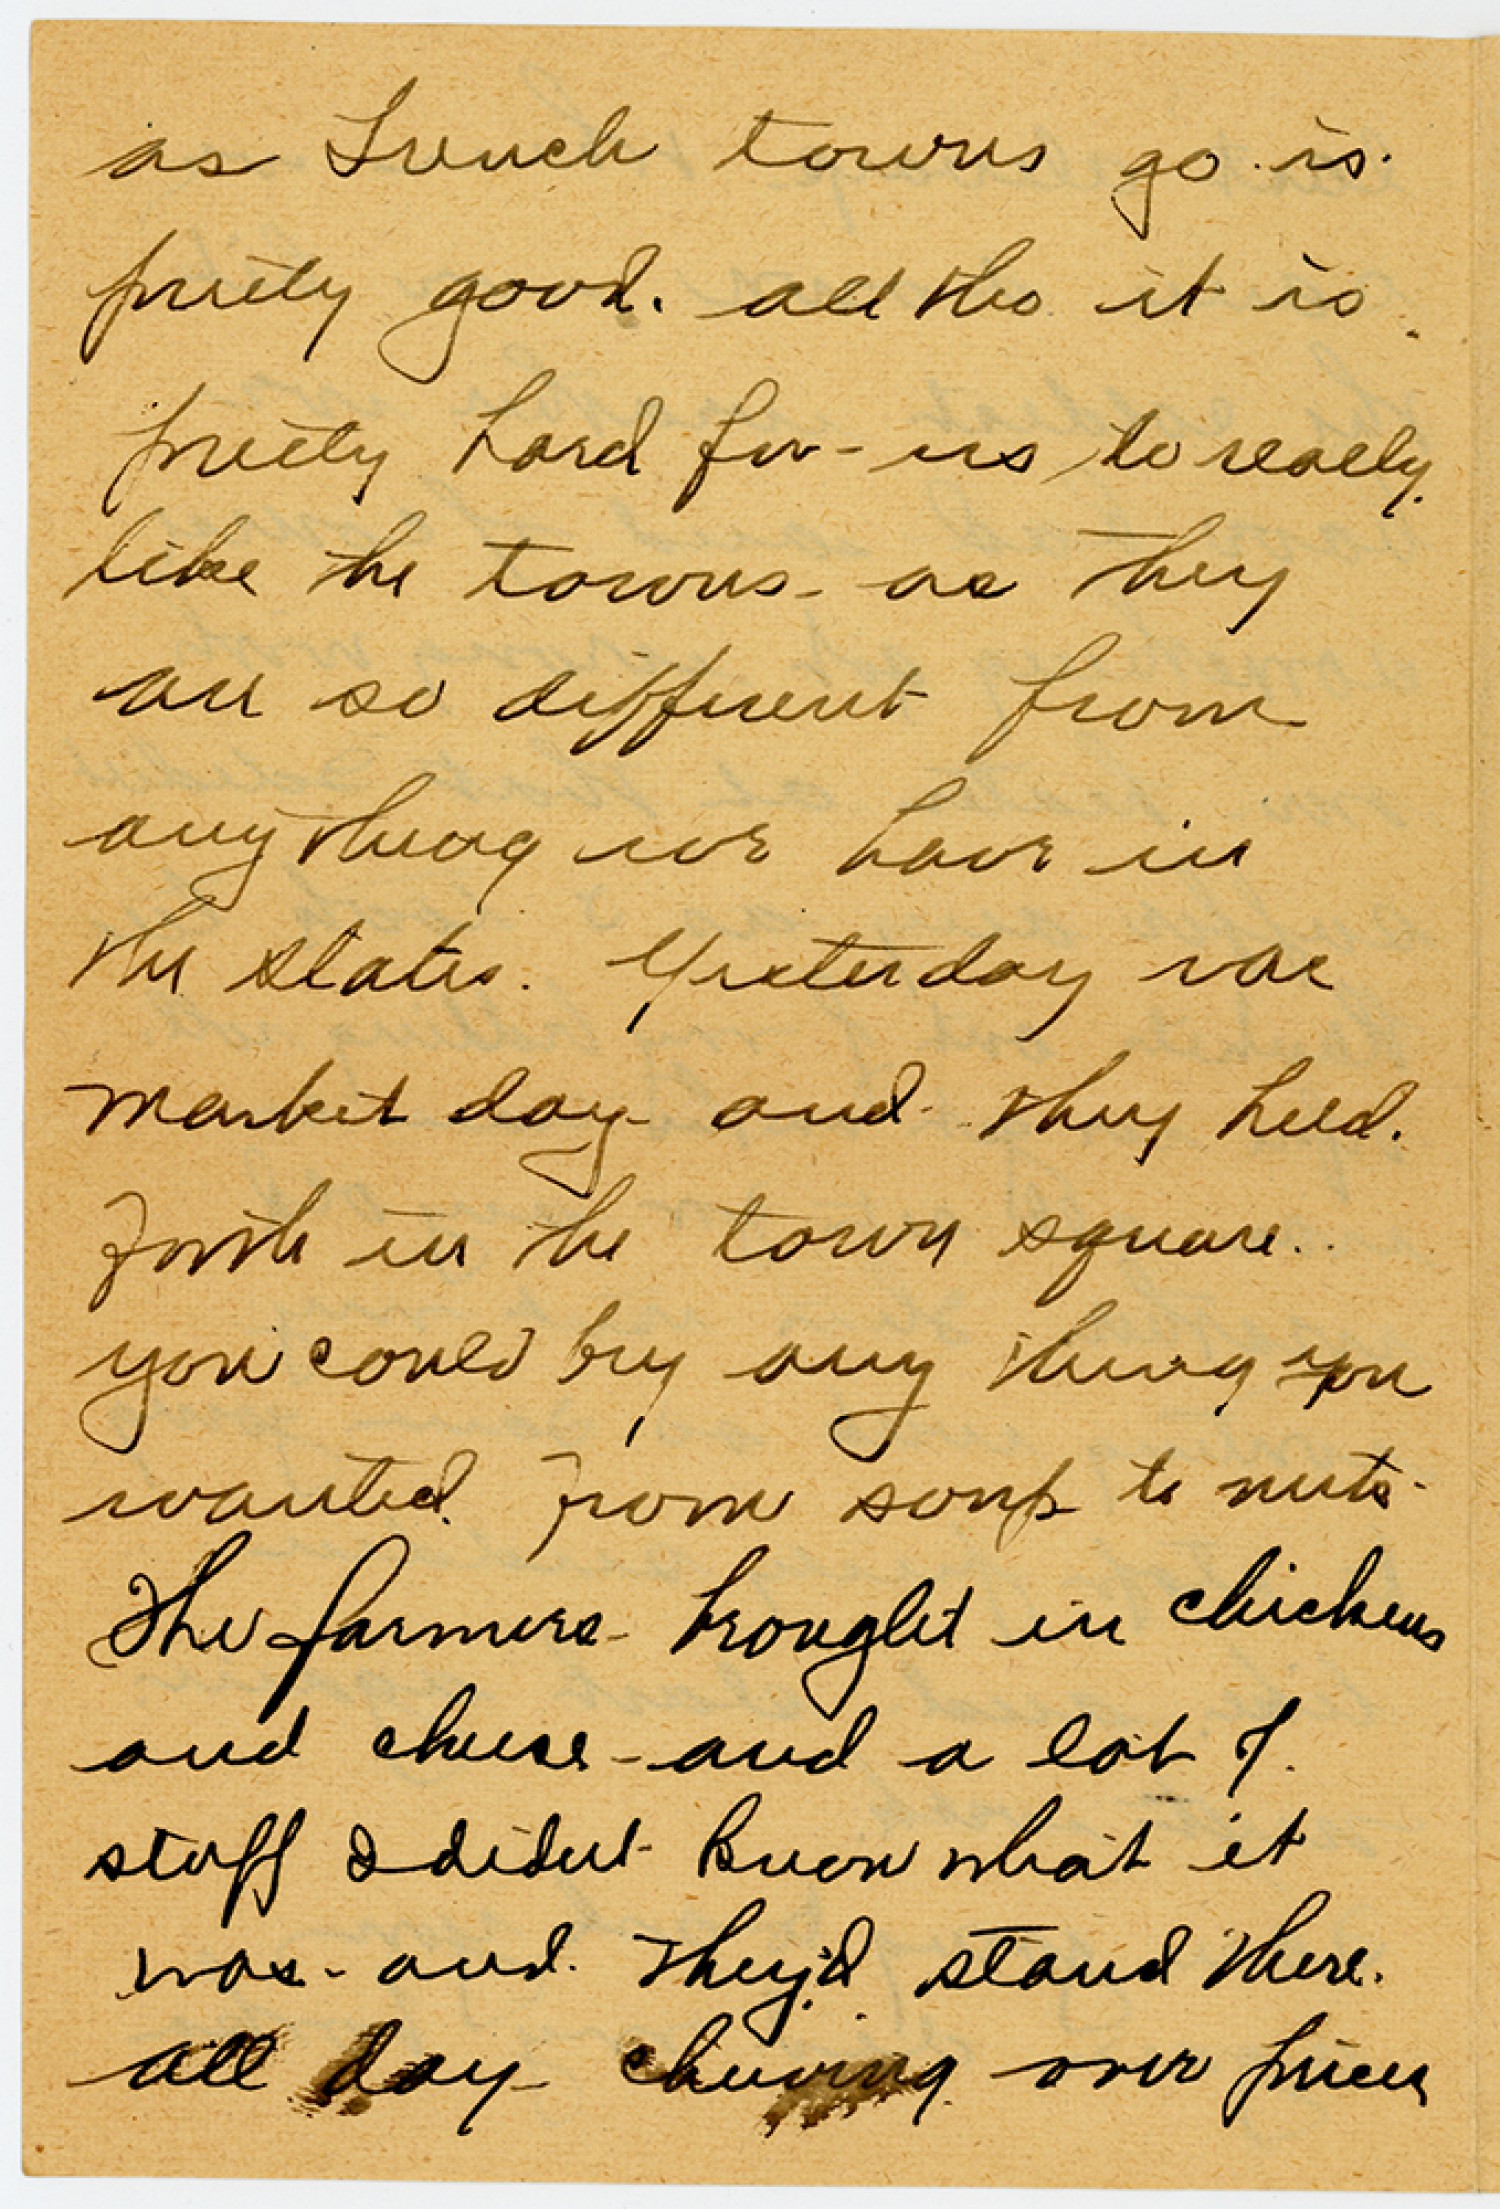 as French towns go is
pretty good. all tho it is
pretty hard for us to really
like the towns - as they
are so different from
anything we have in
the states. Yesterday was
market day - and they held
forth in the town square.
you could buy any thing you
wanted from soup to nuts -
The farmers - brought in chickens
and cheese - and a lot of
stuff I didnt know what it
was - and they'd stand there
all day - chewing over prices